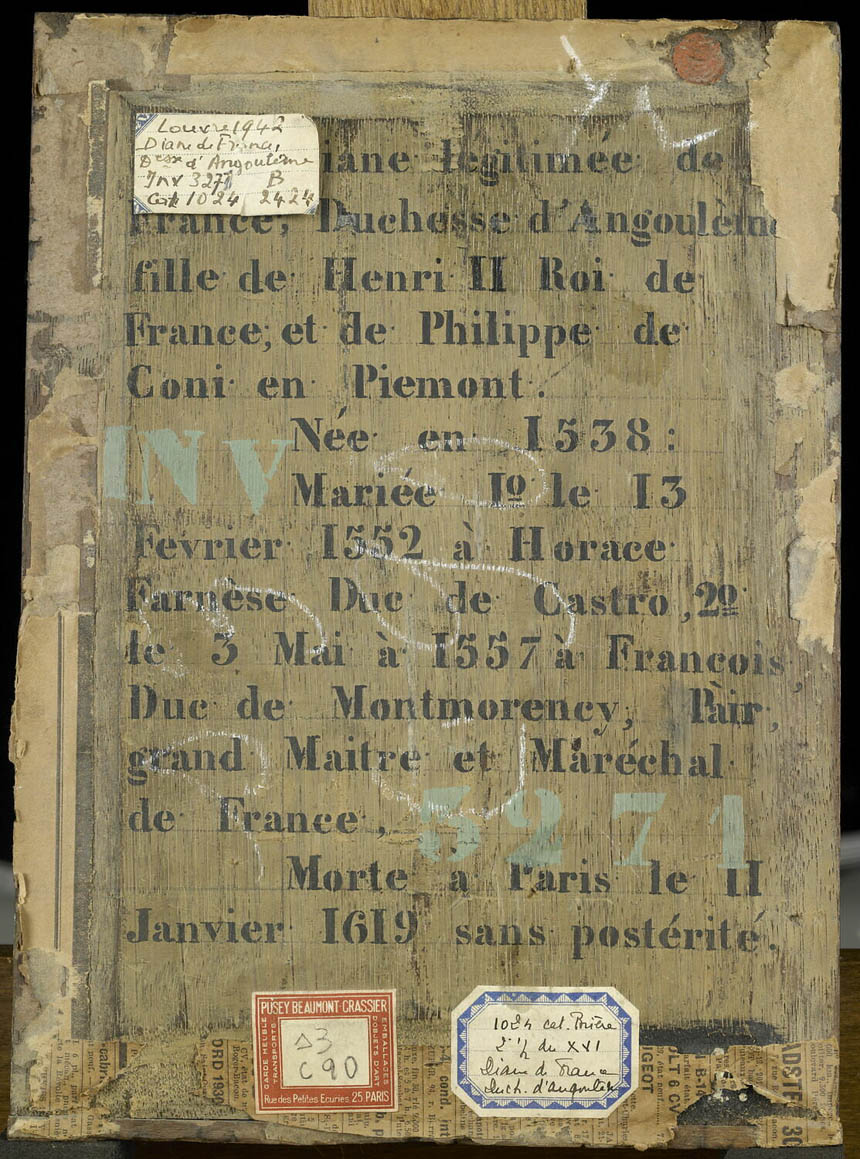 Louvre 1942
Diane de France,
Dsse d'Angoulème
Inv 3271 B
Cat 1024 2424
iane légitimée de
France, Duchesse d'Angoulème
fille de Henri II Roi de
France, et de Philippe de
Coni en Piemont.
INV
Née en 1538:
Mariée 1º le 13
Fevrier 1552 à Horace
Farnèse Duc de Castro, 2º
le 3 Mai à 1557 à François,
Duc de Montmorency, Pair,
grand Maitre et Maréchal
de France,
3271
Morte a Paris le 11
Janvier 1619 sans postérité.
PUSEY BEAUMONT-CRASSIER
GARDE MEUBLE
TRANSPORTS
EMBALLAGES
D'OBJETS D'ART
Δ3
C90
Rue des Petites Ecuries. 25 PARIS
1024 cat. Brière
2e ½ du XVI
Diane de France
duch. d'angoulême
DRD 1930
LT 6 CV